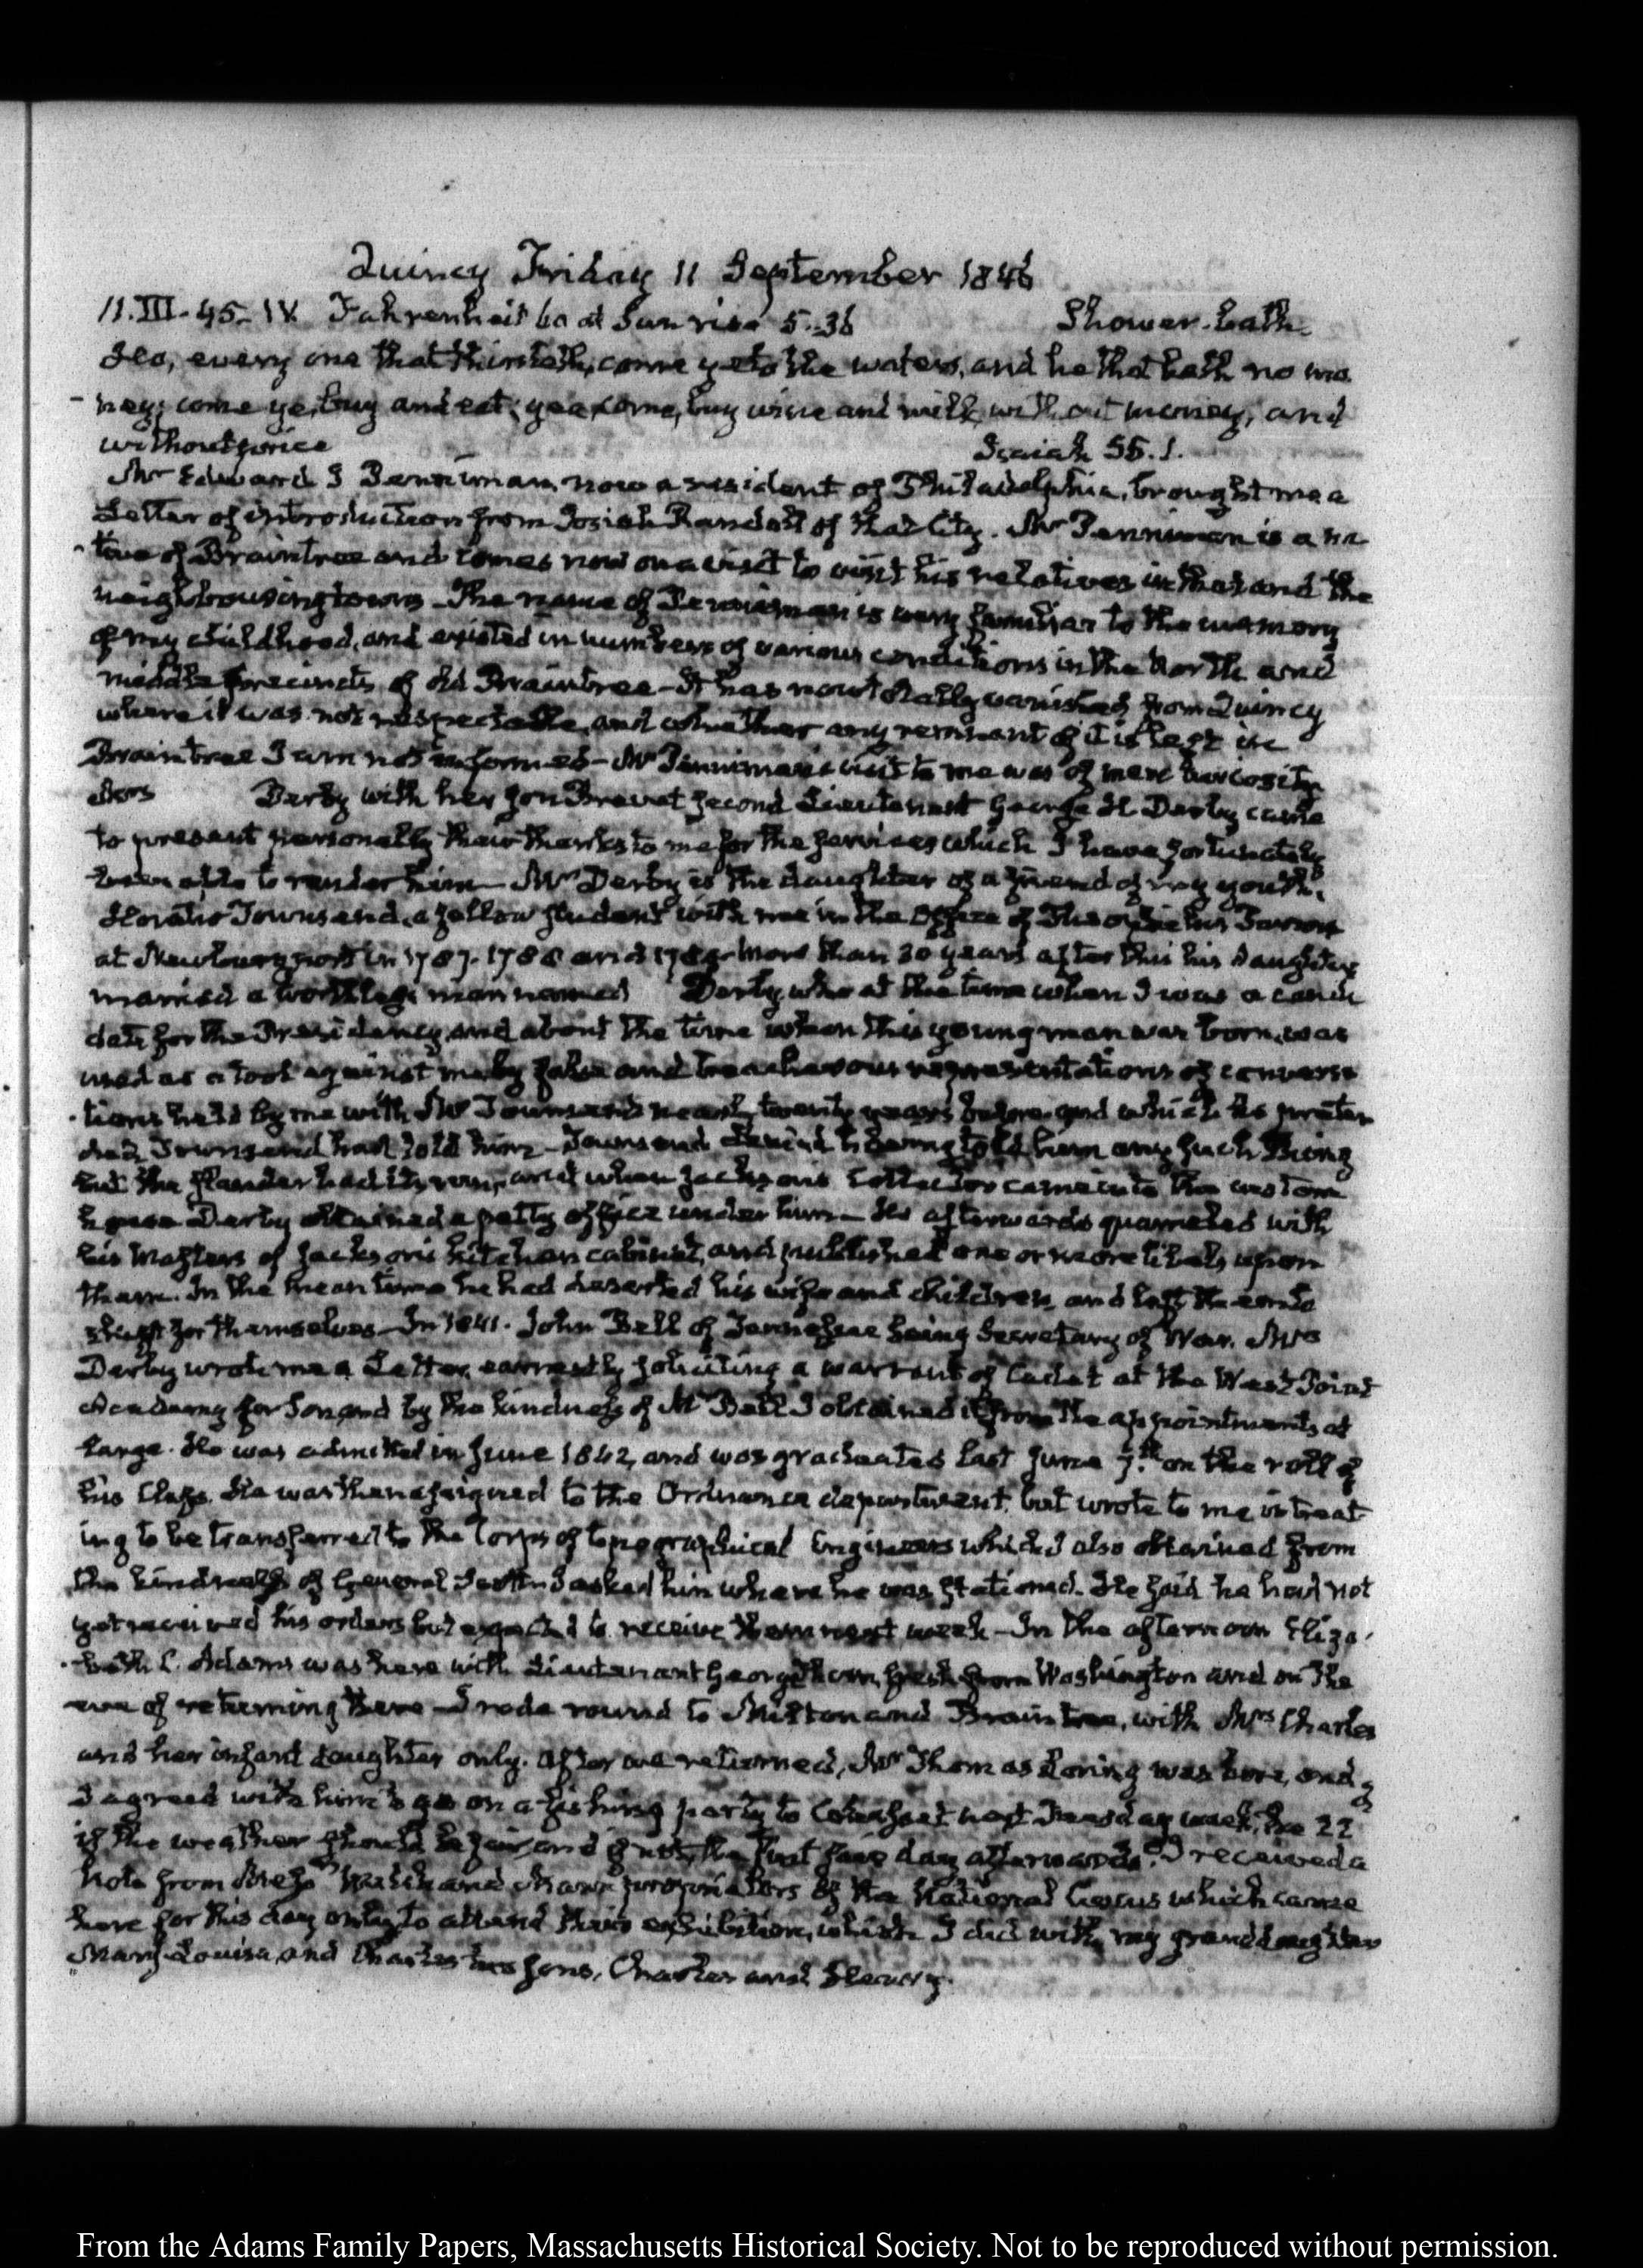 Quincy Friday 11 September 1846
11. III. 45. IV. Fahrenheit 60 at Sunrise 5..36 Shower-bath.
Ho, every one that thirsteth, come ye to the waters, and he that hath no mo
-ney; come ye, buy and eat; yea, come, buy wine and milk, without money, and
without price Isaiah 55. 1.
Mr Edward J Penniman, now a resident of Philadelphia, brought me a
Letter of introduction from Josiah Randall of that City. Mr Penniman is a na
-tive of Braintree and comes now on a visit to visit his relatives in that and the
neighbouring towns. The name of Penniman is very familiar to the memory
of my childhood, and existed in numbers of various conditions in the North and
middle precincts of old Braintree - It has now totally vanished from Quincy
where it was not respectable, and whether any remnant of it is left in
Braintree I am not informed - Mr Penniman's visit to me was of mere curiosity.
Mrs Derby with her Son Brevet Second Lieutenant George H Derby came
to present personally their thanks to me for the services which I have fortunately
been able to render him - Mrs Derby is the daughter of a friend of my youth,
Horatio Townsend, a fellow student with me in the Office of Theophilus Parsons
at Newburyport in 1787. 1788 and 1789. More than 30 years after this his daughter
married a worthless man named Derby, who at the time when I was a candi
date for the Presidency, and about the time when this young man was born, was
used as a tool against me by false and treacherous representations of conversa
-tions held by me with Mr Townsend nearly twenty years before, and which he preten
ded, Townsend had told him - Townsend denied having told him any such thing
but the slander had its run, and when Jackson's Collector came into the custom
house Derby obtained a petty office under him - He afterwards quarreled with
his Masters of Jackson's kitchen cabinet, and published one or more libels upon
them. In the mean time he had deserted his wife and children, and left them to
shift for themselves - In 1841. John Bell of Tennessee being Secretary of War, Mrs
Derby wrote me a Letter, earnestly soliciting a warrant of Cadet at the West Point
Academy for Son, and by the kindness of Mr Bell I obtained it from the appointments at
large. He was admitted in June 1842, and was graduated last June 7th on the roll of
his Class. He was then assigned to the Ordnance department, but wrote to me intreat-
ing to be transferred to the Corps of topographical Engineers which I also obtained from
the kindness of General Scott - I asked him where he was stationed. He said he had not
yet received his orders but expected to receive them next week - In the afternoon Eliza-
-beth C. Adams was here with Lieutenant George Thom, fresh from Washington and on the
eve of returning there - I rode round to Milton and Braintree, with Mrs Charles
and her infant daughter only. After we returned, Mr Thomas Loring was here, and
I agreed with him to go on a fishing party to Cohasset next Tuesday week, the 22
if the weather should be fair and if not, the first fair day afterwards. I received a
Note from Messrs and Mann proprietors of the National Circus which came
here for this day only, to attend their exhibition, which I did with my granddaughter
Mary Louisa, and Charles's two sons, Charles and Henry.
From the Adams Family Papers, Massachusetts Historical Society. Not to be reproduced without permission.